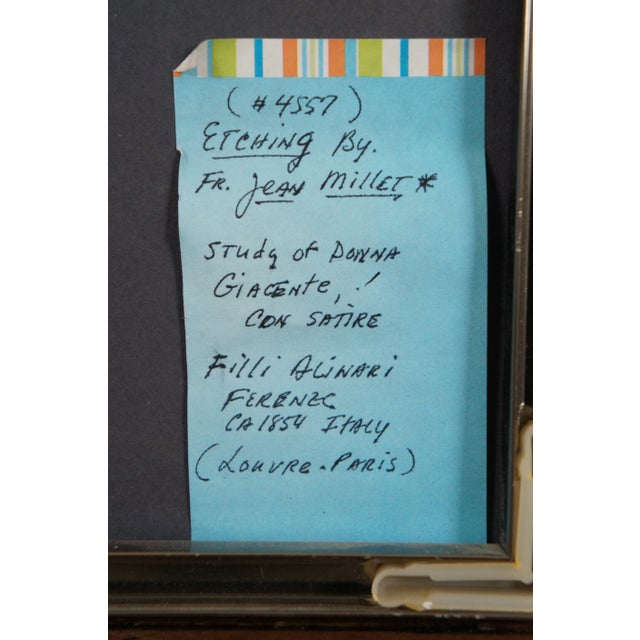 (#4557)
ETCHING By.
FR. JEAN MILLET *
STUDY of DONNA
GIACENTE, !
CON SATIRE
Filli ALINARI
FERENEC
CA 1854 ITALY
(LOUVRE-PARIS)